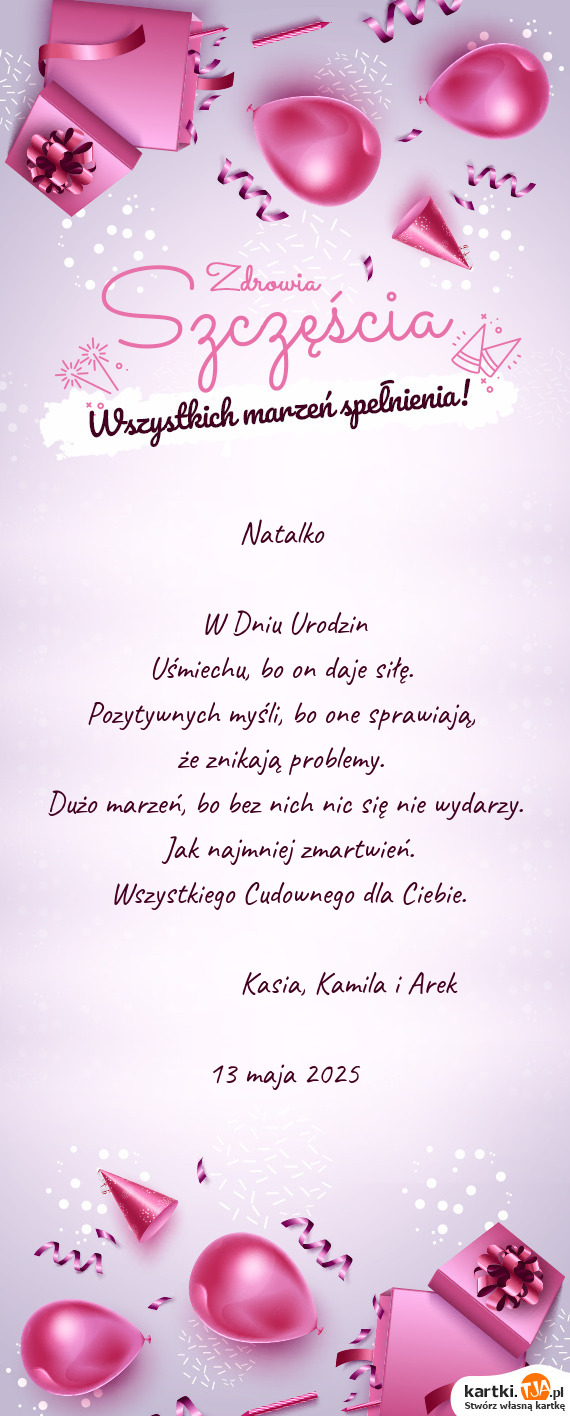 Zdrowia
Szczęścia
Wszystkich marzeń spełnienia!
Natalko
W Dniu Urodzin
Uśmiechu, bo on daje siłę.
Pozytywnych myśli, bo one sprawiają,
że znikają problemy.
Dużo marzeń, bo bez nich nic się nie wydarzy.
Jak najmniej zmartwień.
Wszystkiego Cudownego dla Ciebie.
Kasia, Kamila i Arek
13 maja 2025
kartki.TJA.pl
Stwórz własną kartkę